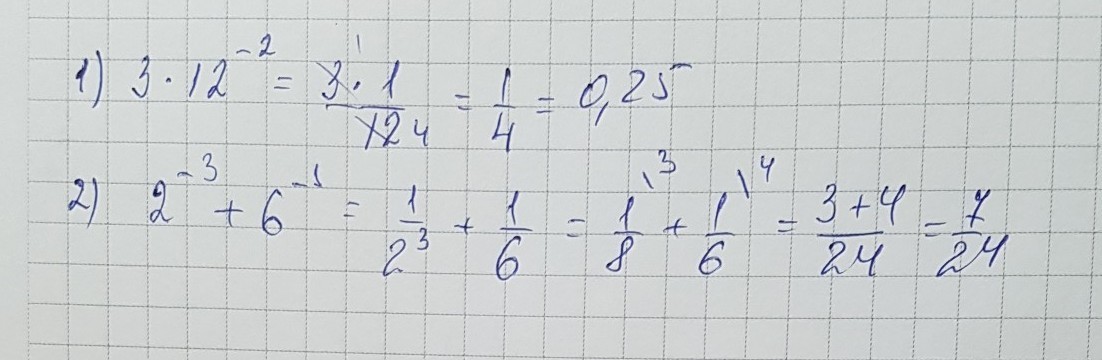 1) 3 · 12⁻² = 3 · 1 / 12 4 = 1/4 = 0,25
2) 2⁻³ + 6⁻¹ = 1/2³ + 1/6 = 1/8 \3 + 1/6 \4 = (3+4)/24 = 7/24